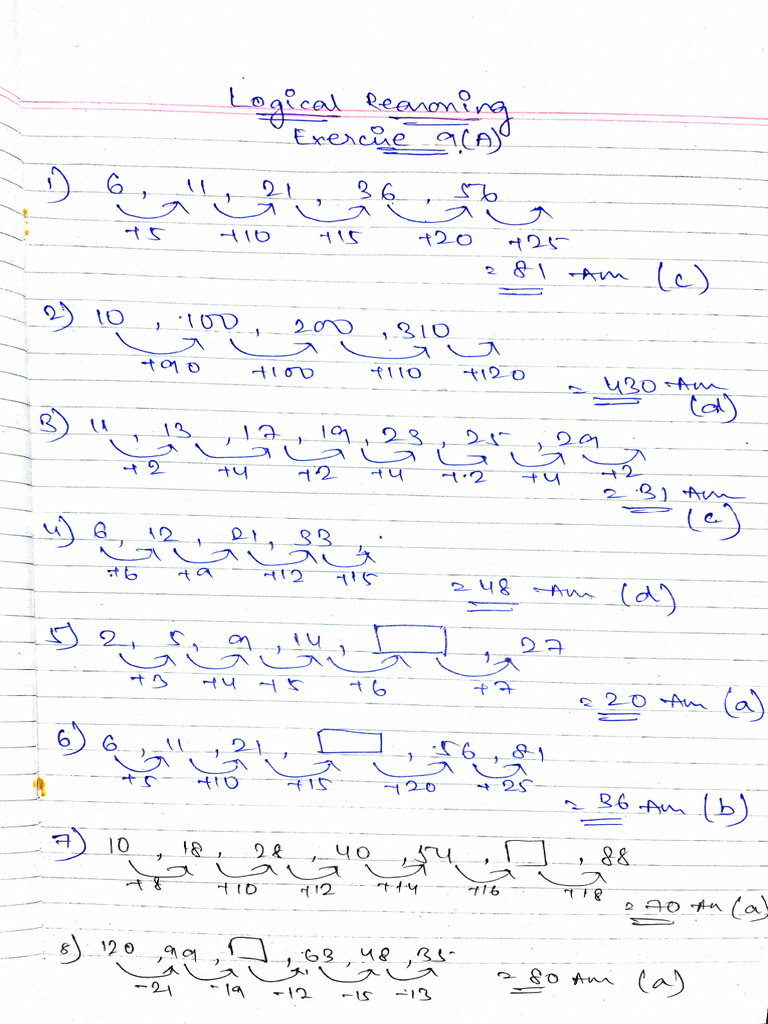 Logical Reasoning
Exercise 9(A)
1) 6, 11, 21, 36, 56
+5 +10 +15 +20 +25
= 81 Ans (c)
2) 10, 100, 200, 310
+90 +100 +110 +120
= 430 Ans
(d)
3) 11, 13, 17, 19, 23, 25, 29
+2 +4 +2 +4 +2 +4 +2
= 31 Ans
(c)
4) 6, 12, 21, 33,
+6 +9 +12 +15
= 48 Ans (d)
5) 2, 5, 9, 14, , 27
+3 +4 +5 +6 +7
= 20 Ans (a)
6) 6, 11, 21, , 56, 81
+5 +10 +15 +20 +25
= 36 Ans (b)
7) 10, 18, 28, 40, 54, , 88
+8 +10 +12 +14 +16 +18
= 70 An (a)
8) 120, 99, , 63, 48, 35
-21 -19 -12 -15 -13
= 80 Ans (a)